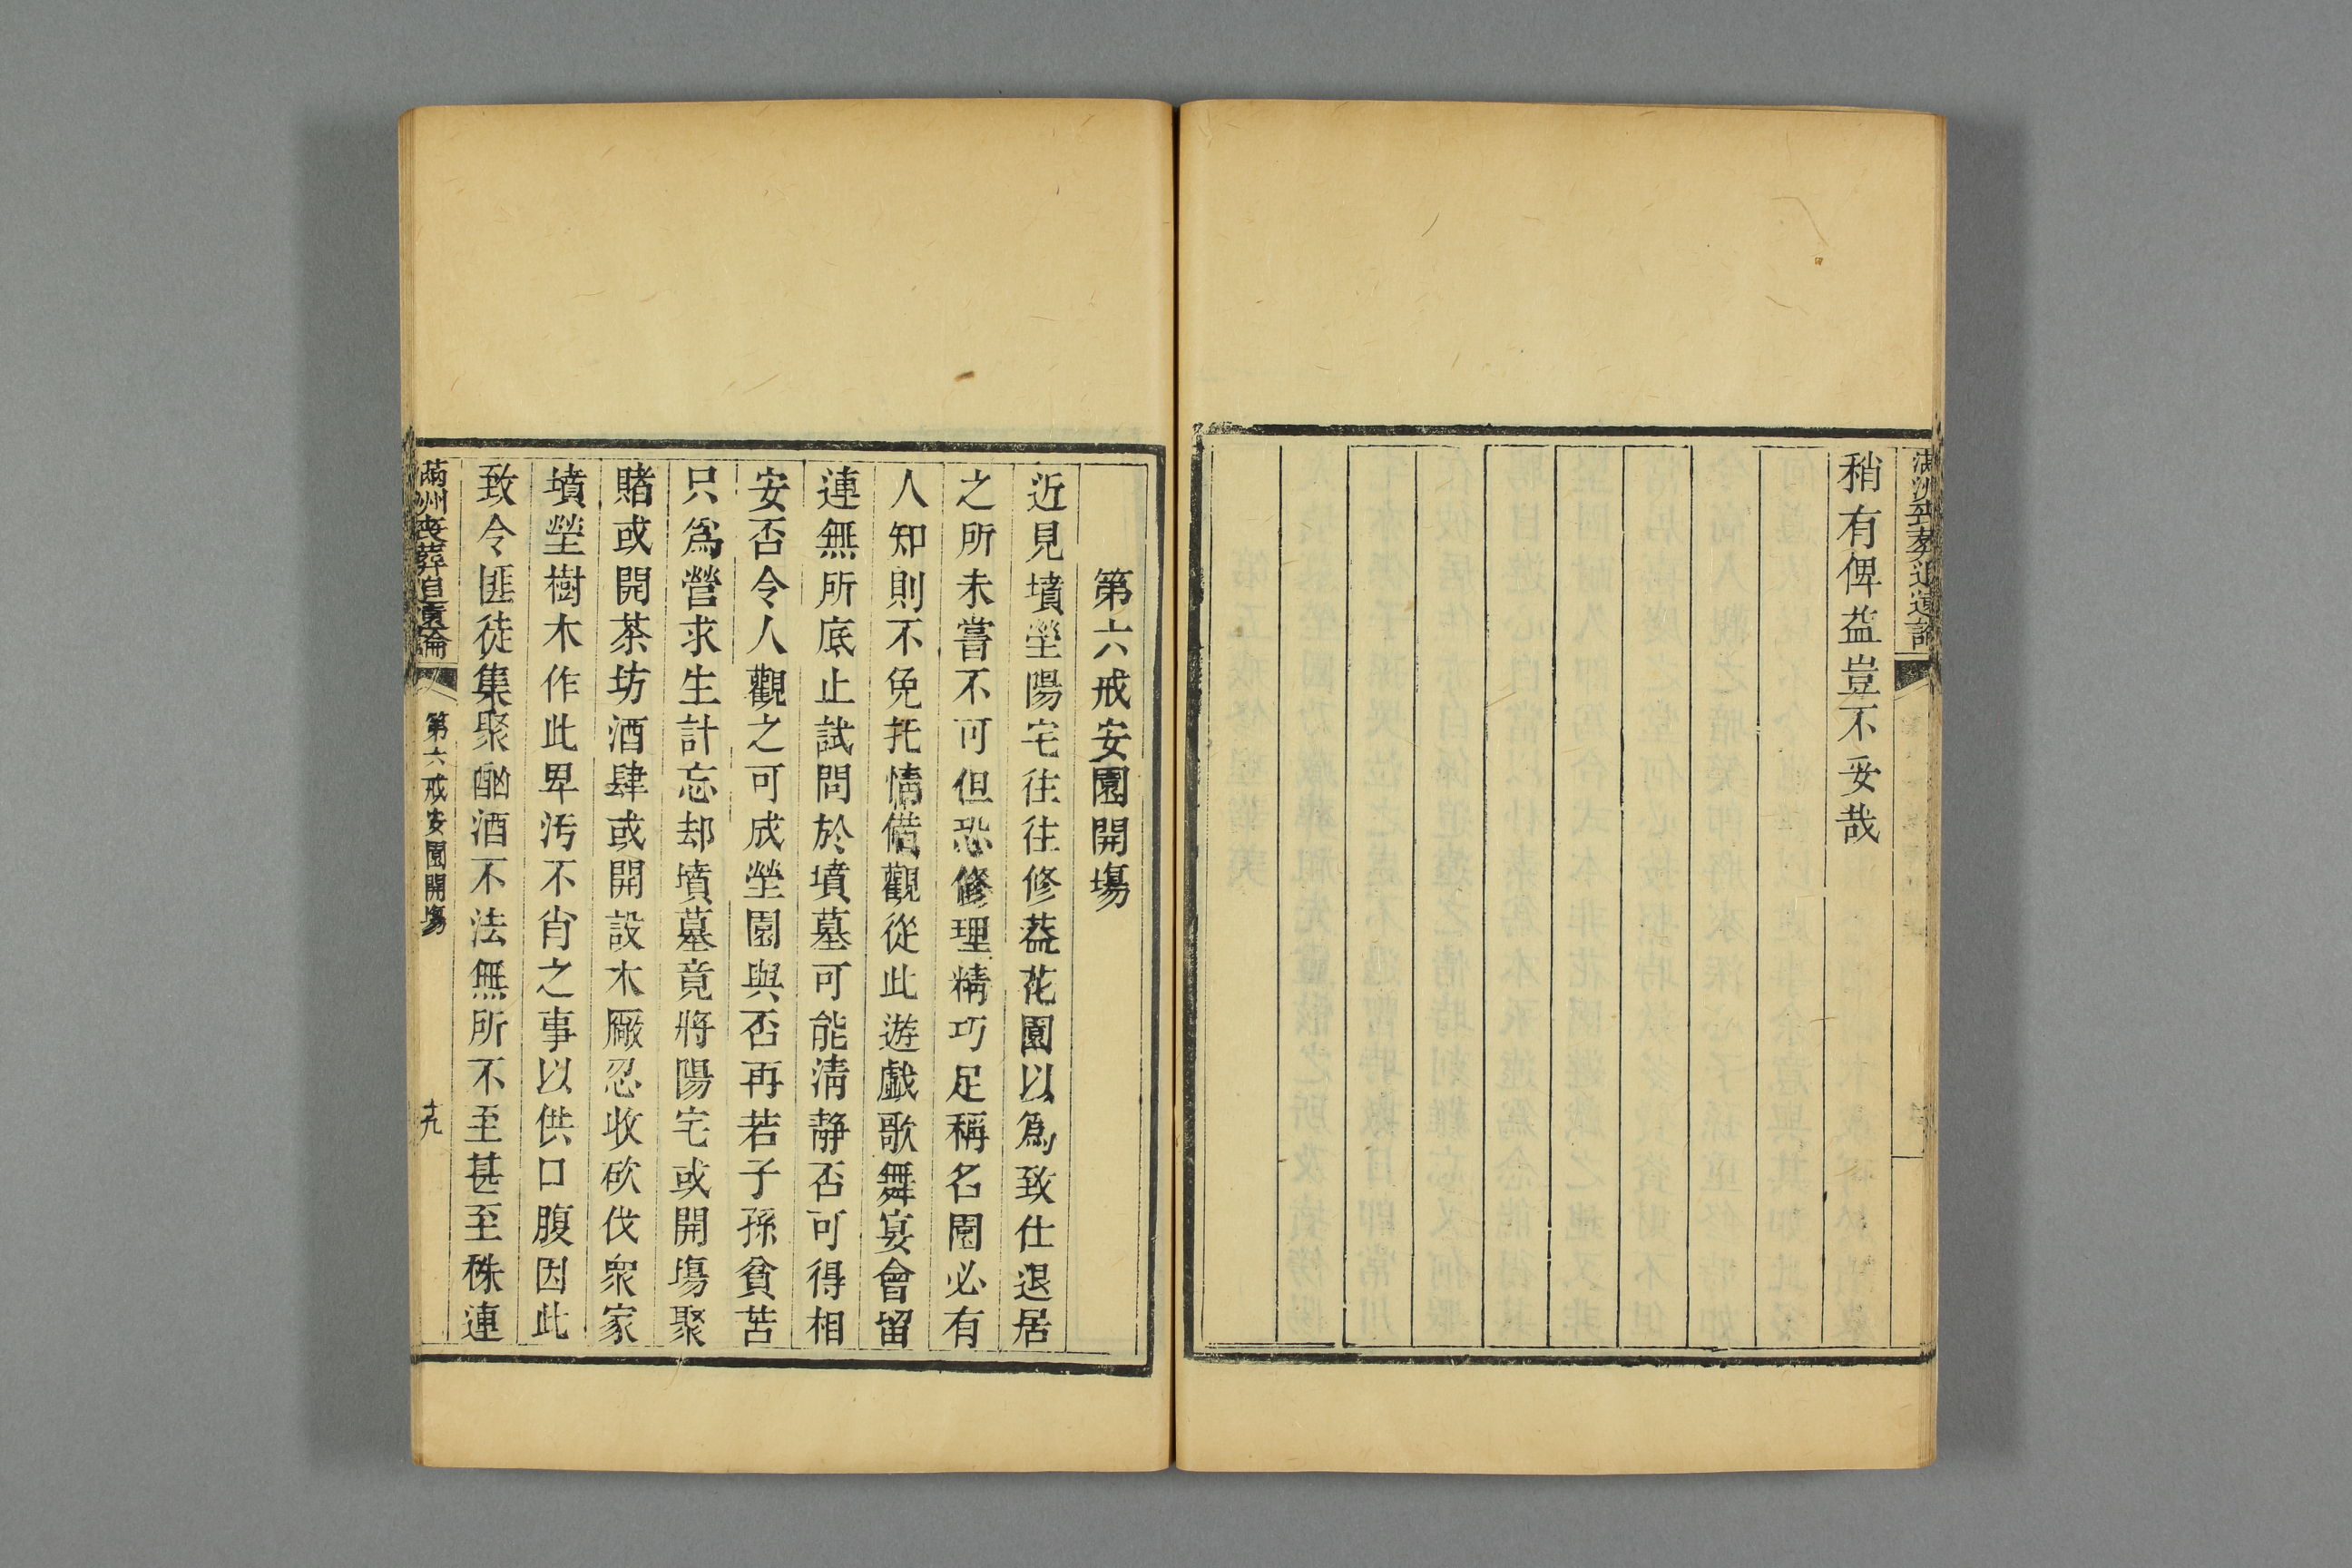 稍有俾益豈不妥哉
第六戒安園開塲
近見墳塋陽宅往往修葢花園以爲致仕退居
之所未嘗不可但恐修理精巧足稱名園必有
人知則不免托情借觀從此遊戲歌舞宴會留
連無所底止試問於墳墓可能清靜否可得相
安否令人觀之可成塋園與否再若子孫貧苦
只爲營求生計忘却墳墓竟將陽宅或開塲聚
賭或開茶坊酒肆或開設木厰忍收砍伐衆家
墳塋樹木作此卑污不肖之事以供口腹因此
致令匪徒集聚酗酒不法無所不至甚至株連
滿洲喪葬追遠論
第六戒安園開塲
十九